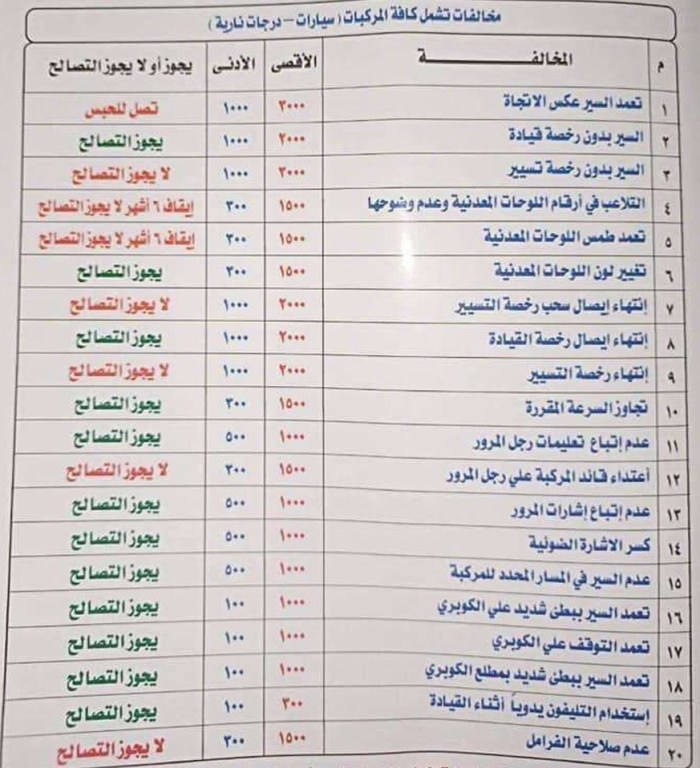 مخالفات تشمل كافة المركبات (سيارات - درجات نارية)
م المخالفـــة الأقصى الأدنى يجوز أو لا يجوز التصالح
١ تعمد السير عكس الاتجاة ٣٠٠٠ ١٠٠٠ تصل للحبس
٢ السير بدون رخصة قيادة ٢٠٠٠ ١٠٠٠ يجوز التصالح
٣ السير بدون رخصة تسيير ٢٠٠٠ ١٠٠٠ لا يجوز التصالح
٤ التلاعب في أرقام اللوحات المعدنية وعدم وضوحها ١٥٠٠ ٣٠٠ إيقاف ٦ أشهر لا يجوز التصالح
٥ تعمد طمس اللوحات المعدنية ١٥٠٠ ٣٠٠ إيقاف ٦ أشهر لا يجوز التصالح
٦ تغيير لون اللوحات المعدنية ١٥٠٠ ٣٠٠ يجوز التصالح
٧ إنتهاء إيصال سحب رخصة التسيير ٢٠٠٠ ١٠٠٠ لا يجوز التصالح
٨ إنتهاء ايصال رخصة القيادة ٢٠٠٠ ١٠٠٠ يجوز التصالح
٩ إنتهاء رخصة التسيير ٢٠٠٠ ١٠٠٠ لا يجوز التصالح
١٠ تجاوز السرعة المقررة ١٥٠٠ ٣٠٠ يجوز التصالح
١١ عدم إتباع تعليمات رجل المرور ١٠٠٠ ٥٠٠ يجوز التصالح
١٢ أعتداء قائد المركبة علي رجل المرور ١٥٠٠ ٣٠٠ لا يجوز التصالح
١٣ عدم إتباع إشارات المرور ١٠٠٠ ٥٠٠ يجوز التصالح
١٤ كسر الاشارة الضوئية ١٠٠٠ ٥٠٠ يجوز التصالح
١٥ عدم السير في المسار المحدد للمركبة ١٠٠٠ ٥٠٠ يجوز التصالح
١٦ تعمد السير ببطئ شديد علي الكوبري ١٠٠٠ ١٠٠ يجوز التصالح
١٧ تعمد التوقف علي الكوبري ١٠٠٠ ١٠٠ يجوز التصالح
١٨ تعمد السير ببطئ شديد بمطلع الكوبري ١٠٠٠ ١٠٠ يجوز التصالح
١٩ إستخدام التليفون يدوياً أثناء القيادة ٣٠٠ ١٠٠ يجوز التصالح
٢٠ عدم صلاحية الفرامل ١٥٠٠ ٣٠٠ لا يجوز التصالح